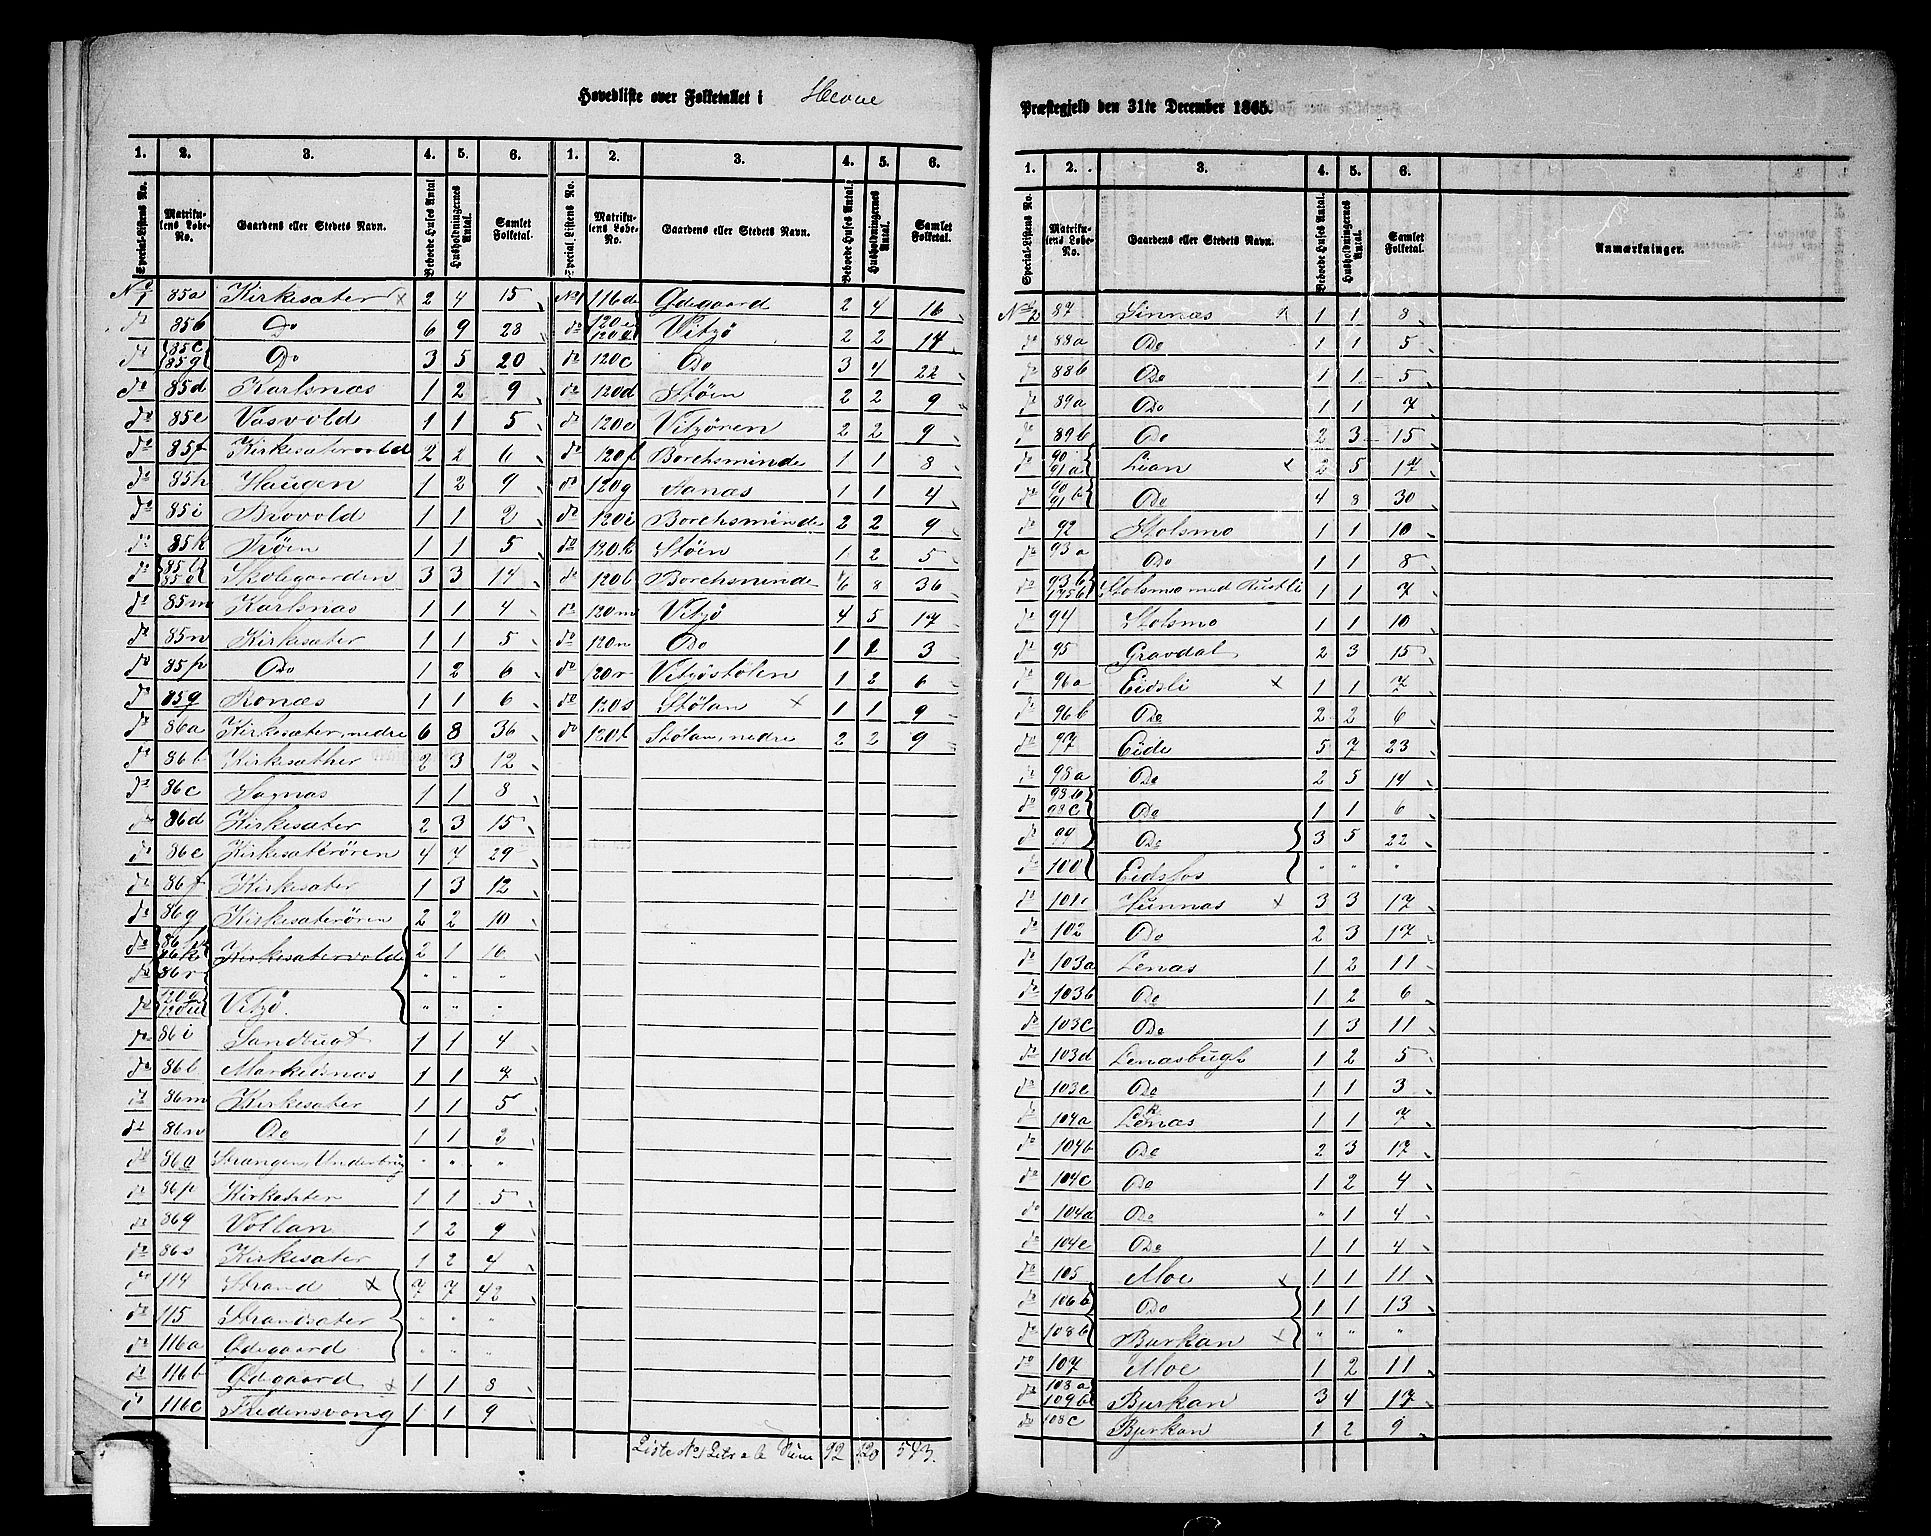 Hovedliste over Folketallet i Hevne
1. 2. 3. 4. 5. 6. 1. 2. 3. 4. 5. 6.
Special-Listens No. Matrikulens Løbe-No. Gaardens eller Stedets Navn. Beboede Huses Antal Husholdningernes Antal. Samlet Folketal. Special Listens No. Matrikulens Løbe-No. Gaardens eller Stedets Navn. Beboede Huses Antal. Husholdningernes Antal. Samlet Folketal.
No 1 85a Kirkesæter x 2 4 15
do 85b Do 6 9 28
do 85c 85g Do 3 5 20
do 85d Karlsnæs 1 2 9
do 85e Vasvold 1 1 5
do 85f Kirkesætervold 2 2 6
do 85h Haugen 1 2 9
do 85i Brovold 1 1 2
do 85k Trøen 1 1 5
do 85l 85o Skolegaarden 3 3 14
do 85m Karlsnæs 1 1 4
do 85n Kirkesæter 1 1 5
do 85p Do 1 2 6
do 85q Ronæs 1 1 6
do 86a Kirkesæter, nedre 6 8 36
do 86b Kirkesæther 2 3 12
do 86c Hagnæs 1 1 8
do 86d Kirkesæter 2 3 15
do 86e Kirkesæterøren 4 7 29
do 86f Kirkesæter 1 3 12
do 86g Kirkesæterøren 2 2 10
do 86h 86k Kirkesætervold 2 1 16
do 86r " " "
do Vitsø. " " "
do 86i Sandbugt 1 1 4
do 86l Markusnæs 1 1 7
do 86m Kirkesæter 1 1 5
do 86n Do 1 1 2
do 86o Strangen, Underbrug " " "
do 86p Kirkesæter 1 1 5
do 86q Vollan 1 2 9
do 86s Kirkesæter 1 2 4
do 114 Strand x 7 7 42
do 115 Strandsæter " " "
do 116a Ødegaard " " "
do 116b Ødegaard x 1 1 8
do 116c Fredensvang 1 1 9
No 1 116d Ødegaard 2 4 16
do Vitsø 2 2 14
do 120c Do 3 4 22
do 120d Støen 2 2 9
do 120e Vitsøren 2 2 9
do 120f Borchsminde 1 1 8
do 120g Aanæs 1 1 4
do 120i Borchsminde 2 2 9
do 120k Støen 1 2 5
do 120l Borchsminde 6 8 36
do 120m Vitsø 4 5 17
do 120n Do 1 2 3
do 120r Vitsøstølen 1 2 6
do 120s Stølan x 1 1 9
do 120t Stølan, nedre 2 2 9
Liste No 1 92 120 543.
Præstegjeld den 31te December 1865.
1. 2. 3. 4. 5. 6.
Special-Listens No. Matrikulens Løbe-No. Gaardens eller Stedets Navn. Beboede Huses Antal. Husholdningernes Antal. Samlet Folketal. Anmærkninger.
No 2 87 Sinnæs x 1 1 8
do 88a Do 1 1 5
do 88b Do 1 1 5
do 89a Do 1 1 7
do 89b Do 2 3 15
do 90 91a Lian x 2 5 17
do 90 91b Do 4 8 30
do 92 Stolsmo 1 1 10
do 93a Do 1 1 8
do 93b 175b Stolsmo med Rustli 1 1 7
do 94 Stolsmo 1 1 10
do 95 Gravdal 2 3 15
do 96a Eidsli x 1 1 7
do 96b Do 2 2 6
do 97 Eide 5 7 23
do 98a Do 2 5 14
do 98b 98c Do 1 1 6
do 99 Do 3 5 22
do 100 Eidsfos " " "
do 101 Hunnæs x 3 3 17
do 102 Do 2 3 17
do 103a Lenæs 1 2 11
do 103b Do 1 2 6
do 103c Do 1 3 11
do 103d Lenæsbugt 1 2 5
do 103e Do 1 1 3
do 104a Lenæs 1 1 7
do 104b Do 2 3 17
do 104c Do 1 2 4
do 104d Do " 1 4
do 104e Do 1 1 4
do 105 Moe x 1 1 11
do 106b Do 1 1 13
do 108b Burkan x " " "
do 107 Moe 1 2 11
do 108a 109b Burkan 3 4 17
do 108c Bjerkan 1 2 9